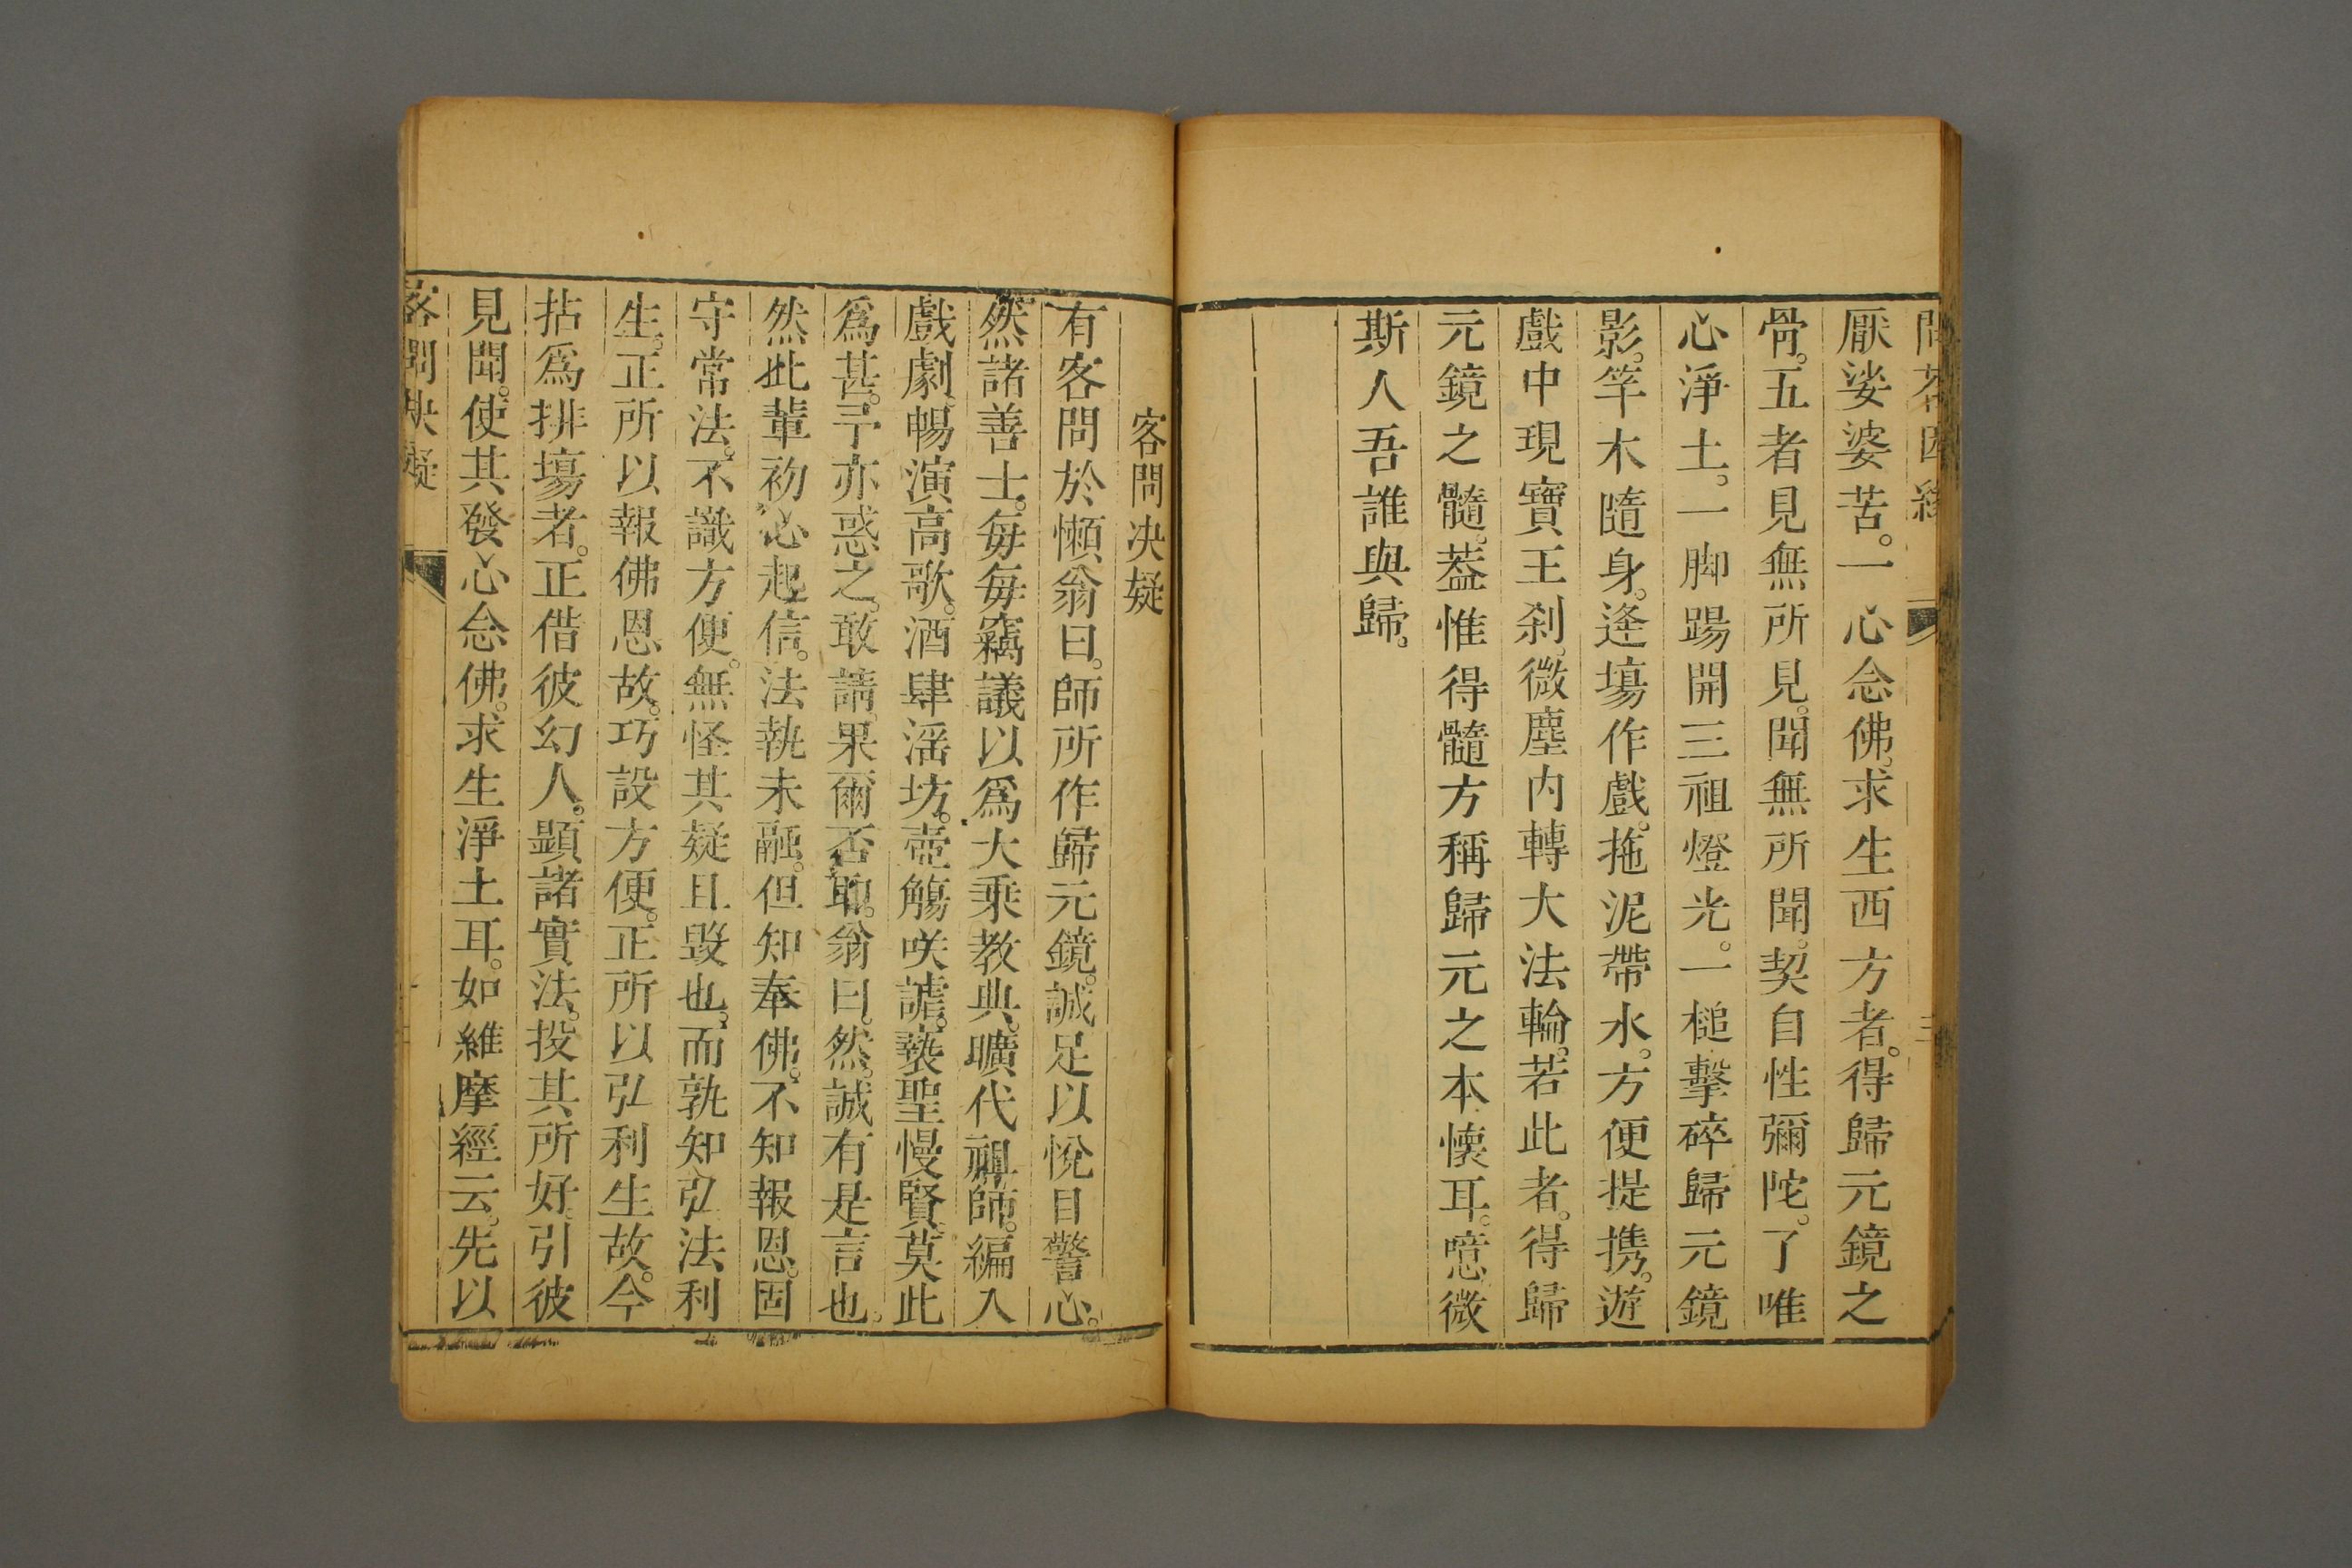 問答因緣
三
厭娑婆苦。一心念佛。求生西方者。得歸元鏡之
骨。五者見無所見。聞無所聞。契自性彌陀。了唯
心淨土。一脚踢開三祖燈光。一槌擊碎歸元鏡
影。竿木隨身。逢塲作戲。拖泥帶水。方便提携。遊
戲中現寶王刹。微塵內轉大法輪。若此者。得歸
元鏡之髓。葢惟得髓方稱歸元之本懷耳。噫微
斯人吾誰與歸。
客問决疑
有客問於懶翁曰。師所作歸元鏡。誠足以悅目警心。
然諸善士。每每竊議以爲大乘教典。曠代祖師。編入
戲劇。暢演高歌。酒肆滛坊。壺觴咲謔。褻聖慢賢。莫此
爲甚。予亦惑之。敢請。果爾否耶。翁曰。然。誠有是言也。
然此輩初心起信。法執未融。但知奉佛。不知報恩。固
守常法。不識方便。無怪其疑且毀也。而孰知弘法利
生。正所以報佛恩故。巧設方便。正所以弘利生故。今
拈爲排塲者。正借彼幻人。顯諸實法。投其所好。引彼
見聞。使其發心念佛。求生淨土耳。如維摩經云。先以
客問决疑